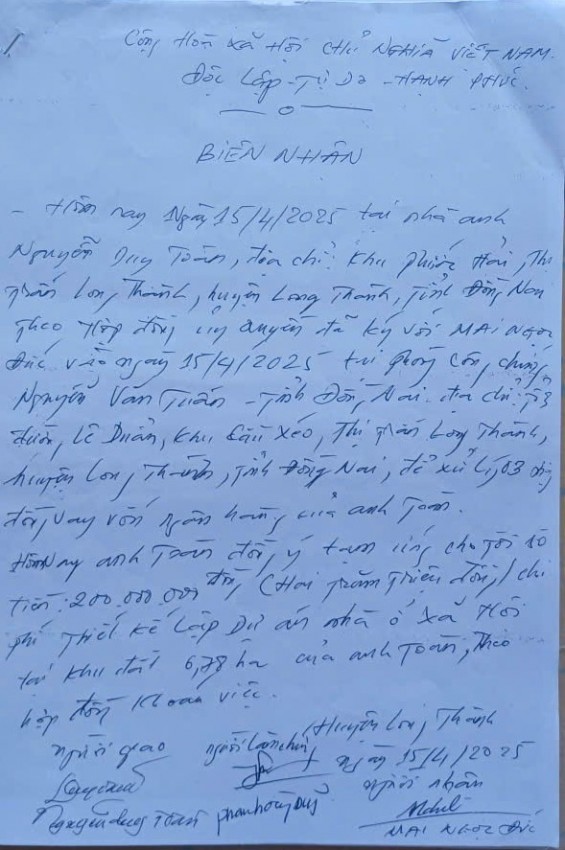 Cộng Hoà Xã Hội Chủ Nghĩa Việt Nam.
Độc Lập - Tự Do - Hạnh Phúc.
Biên Nhận
- Hôm nay Ngày 15/4/2025 tại nhà anh
Nguyễn Duy Toàn, địa chỉ: Khu Phước Hải, Thị
trấn Long Thành, huyện Long Thành, tỉnh Đồng Nai
theo Hợp đồng uỷ quyền đã ký với Mai Ngọc
Đức vào ngày 15/4/2025 tại phòng công chứng
Nguyễn Văn Tuấn - Tỉnh Đồng Nai. địa chỉ:
đường Lê Duẩn, Khu Cầu Xéo, Thị trấn Long Thành,
huyện Long Thành, tỉnh Đồng Nai, để xử lý 03 hợp
đồng vay vốn ngân hàng của anh Toàn.
Hôm nay anh Toàn đồng ý tạm ứng cho tôi số
tiền: 200.000.000 đồng (Hai trăm triệu đồng) chi
phí thiết kế Lập Dự án nhà ở xã Hội
tại khu đất 6,78 ha của anh Toàn, theo
hợp đồng khoán việc.
Huyện Long Thành
người giao người làm chứng ngày 15/4/2025
người nhận
Nguyễn Duy Toàn
Mai Ngọc Đức